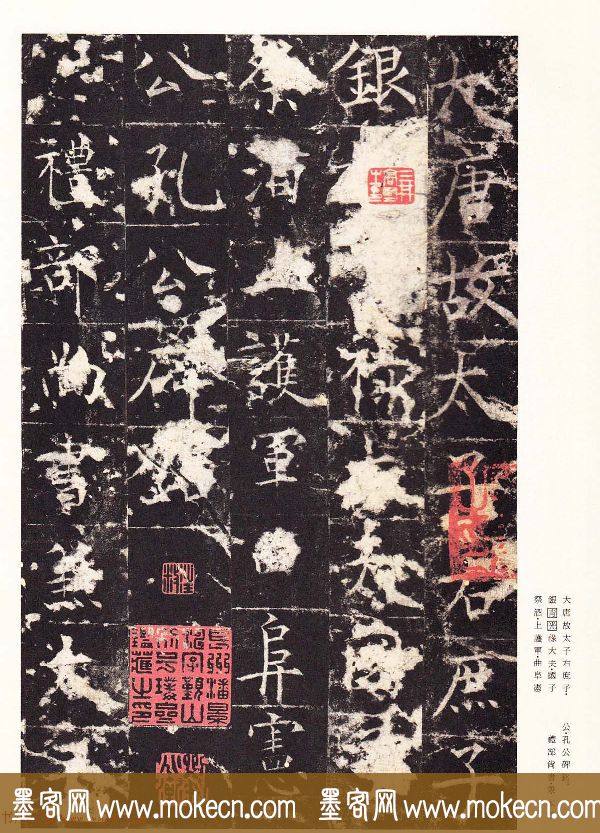 大唐故太子右庶子
銀祿大夫國子
祭酒上護軍阜憲
公孔公碑銘
禮部尚書兼太子
大唐故太子右庶子・
銀青光祿大夫・國子
祭酒・上護軍・曲阜憲
公・孔公碑銘
禮部尚書・兼
墨客网 www.mokecn.com 墨客网 www.mokecn.com